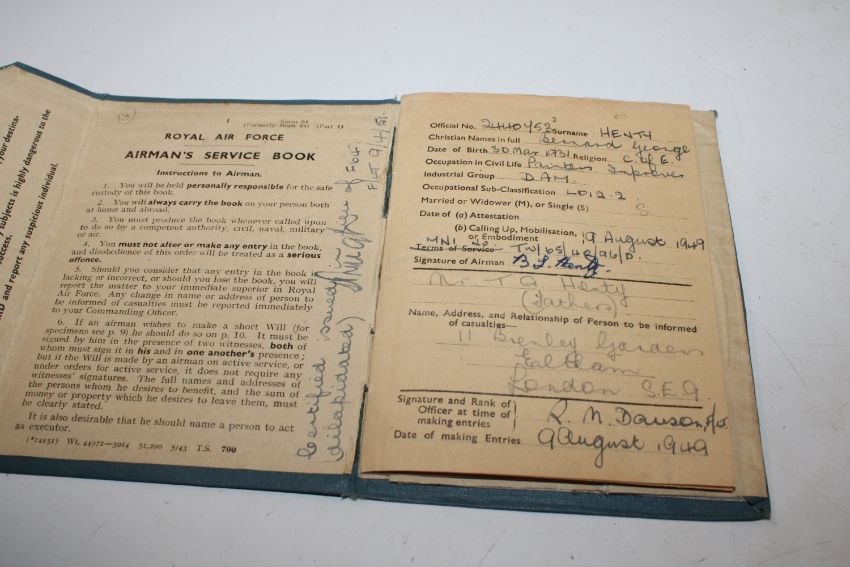 your destina-
subjects is highly dangerous to the
success.
AND and report any suspicious individual.
3
1
Form 64
(Formerly Book 64) (Part I)
ROYAL AIR FORCE
AIRMAN'S SERVICE BOOK
Instructions to Airman.
1. You will be held personally responsible for the safe
custody of this book.
2. You will always carry the book on your person both
at home and abroad.
3. You must produce the book whenever called upon
to do so by a competent authority, civil, naval, military
or air.
4. You must not alter or make any entry in the book,
and disobedience of this order will be treated as a serious
offence.
5. Should you consider that any entry in the book is
lacking or incorrect, or should you lose the book, you will
report the matter to your immediate superior in Royal
Air Force. Any change in name or address of person to
be informed of casualties must be reported immediately
to your Commanding Officer.
6. If an airman wishes to make a short Will (for
specimens see p. 9) he should do so on p. 10. It must be
signed by him in the presence of two witnesses, both of
whom must sign it in his and in one another's presence;
but if the Will is made by an airman on active service, or
under orders for active service, it does not require any
witnesses' signatures. The full names and addresses of
the persons whom he desires to benefit, and the sum of
money or property which he desires to leave them, must
be clearly stated.
It is also desirable that he should name a person to act
as executor.
(*12151) Wt. 44972—3014 51,200 5/43 T.S. 700
Certified issued in lieu of F64.
(dilapidated)
2
Official No. 2440452 Surname HENTY
Christian Names in full Bernard George
Date of Birth 30 Mar 1931 Religion C of E.
Occupation in Civil Life Painters Improver
Industrial Group D.A.M.
Occupational Sub-Classification LD12.2.
Married or Widower (M), or Single (S) S.
Date of (a) Attestation
(b) Calling Up, Mobilisation, or Embodiment 9 August 1949
Terms of Service MNI No.
Signature of Airman B G Henty.
Mr. T. G. Henty
(Father)
Name, Address, and Relationship of Person to be informed
of casualties—
11 Brenley Gardens
Eltham
London S.E.9.
Signature and Rank of
Officer at time of
making entries R. N. Dawson,
Date of making Entries 9 August 1949